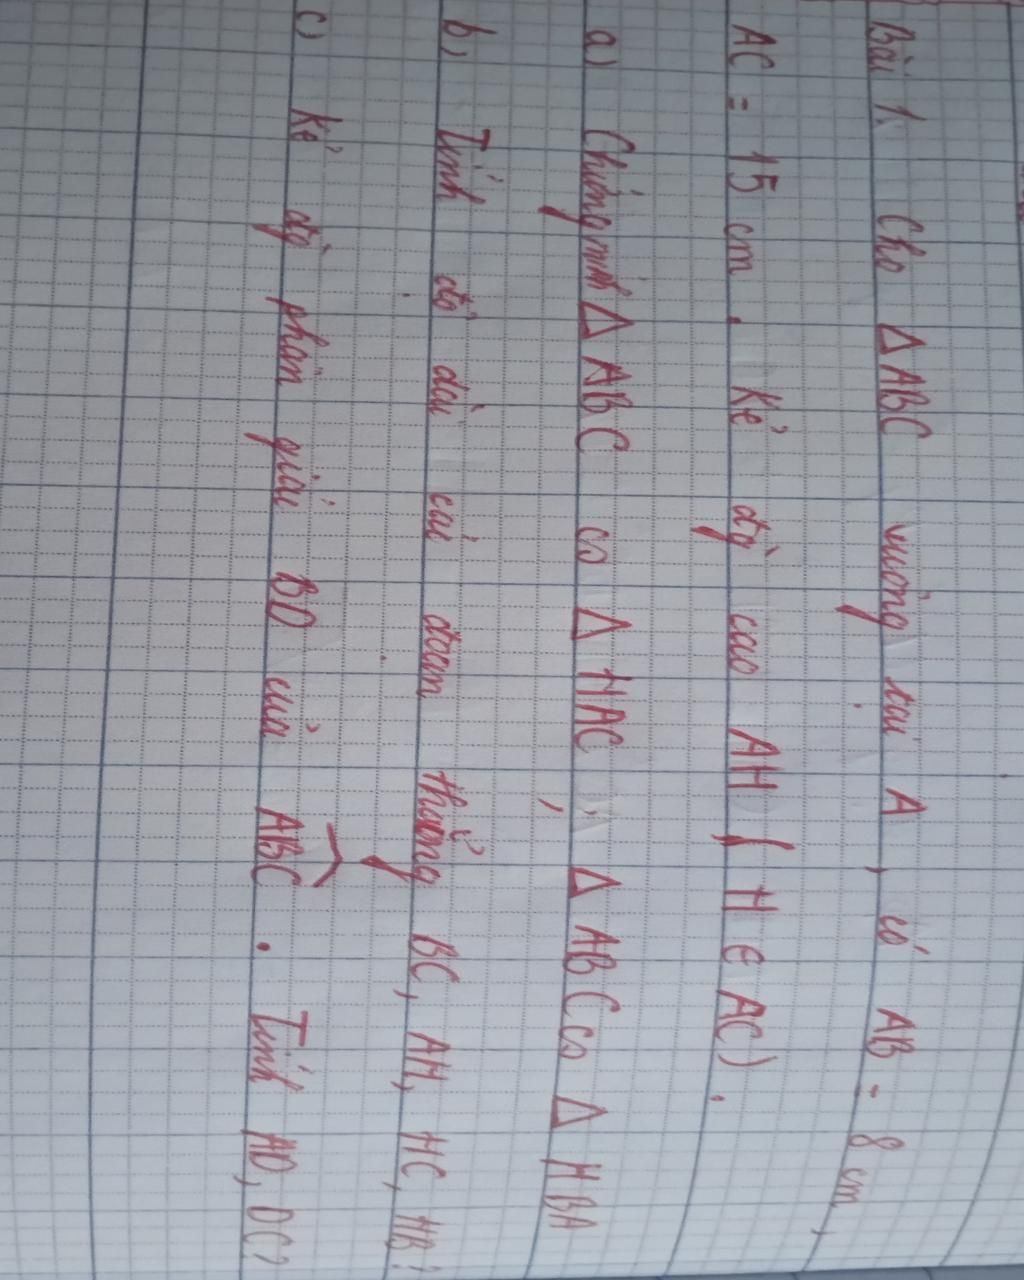 Bài 1. Cho Δ ABC vuông tại A, có AB = 8 cm,
AC = 15 cm. Kẻ đg̀ cao AH (H ∈ AC).
a) Chứng minh Δ ABC ∽ Δ HAC, Δ ABC ∽ Δ HBA
b, Tính độ dài cái đoạn thẳng BC, AH, HC, HB?
c, Kẻ đg̀ phân giải BD của \widehat{ABC}. Tính AD, DC?